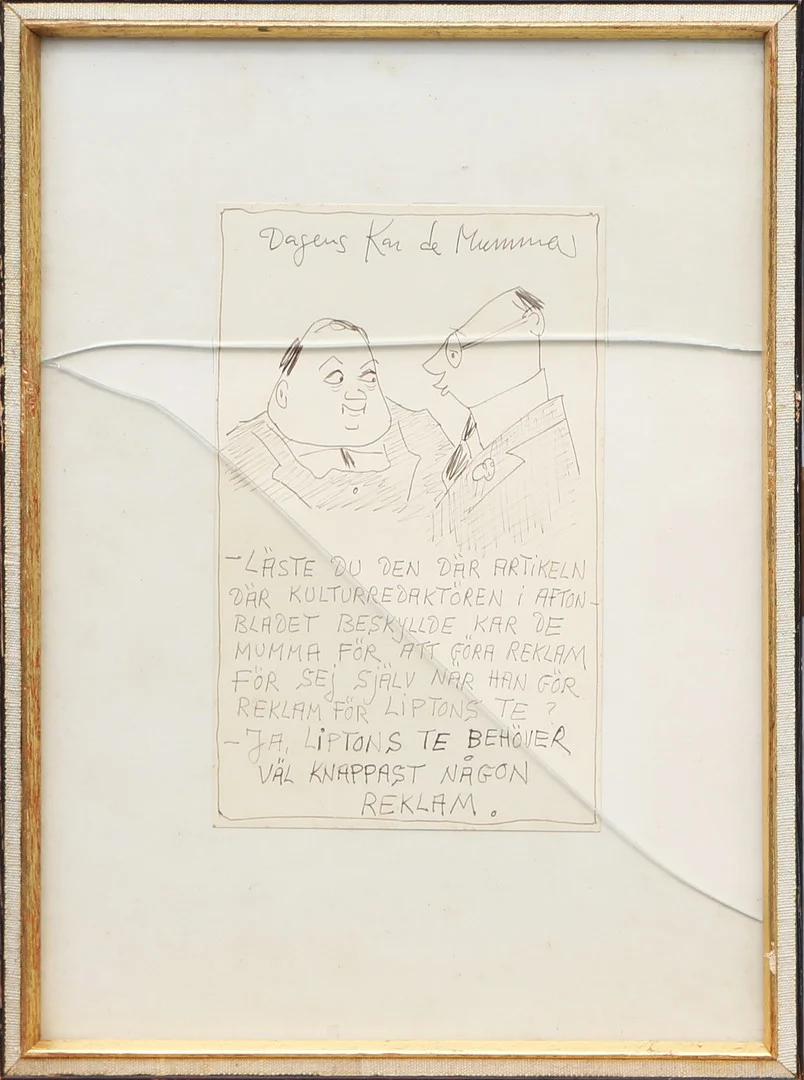 Dagens Kar de Mumma
- LÄSTE DU DEN DÄR ARTIKELN
DÄR KULTURREDAKTÖREN i AFTON-
BLADET BESKYLLDE KAR DE
MUMMA FÖR ATT GÖRA REKLAM
FÖR SEJ SJÄLV NÄR HAN GÖR
REKLAM FÖR LIPTONS TE ?
- JA, LIPTONS TE BEHÖVER
VÄL KNAPPAST NÅGON
REKLAM.